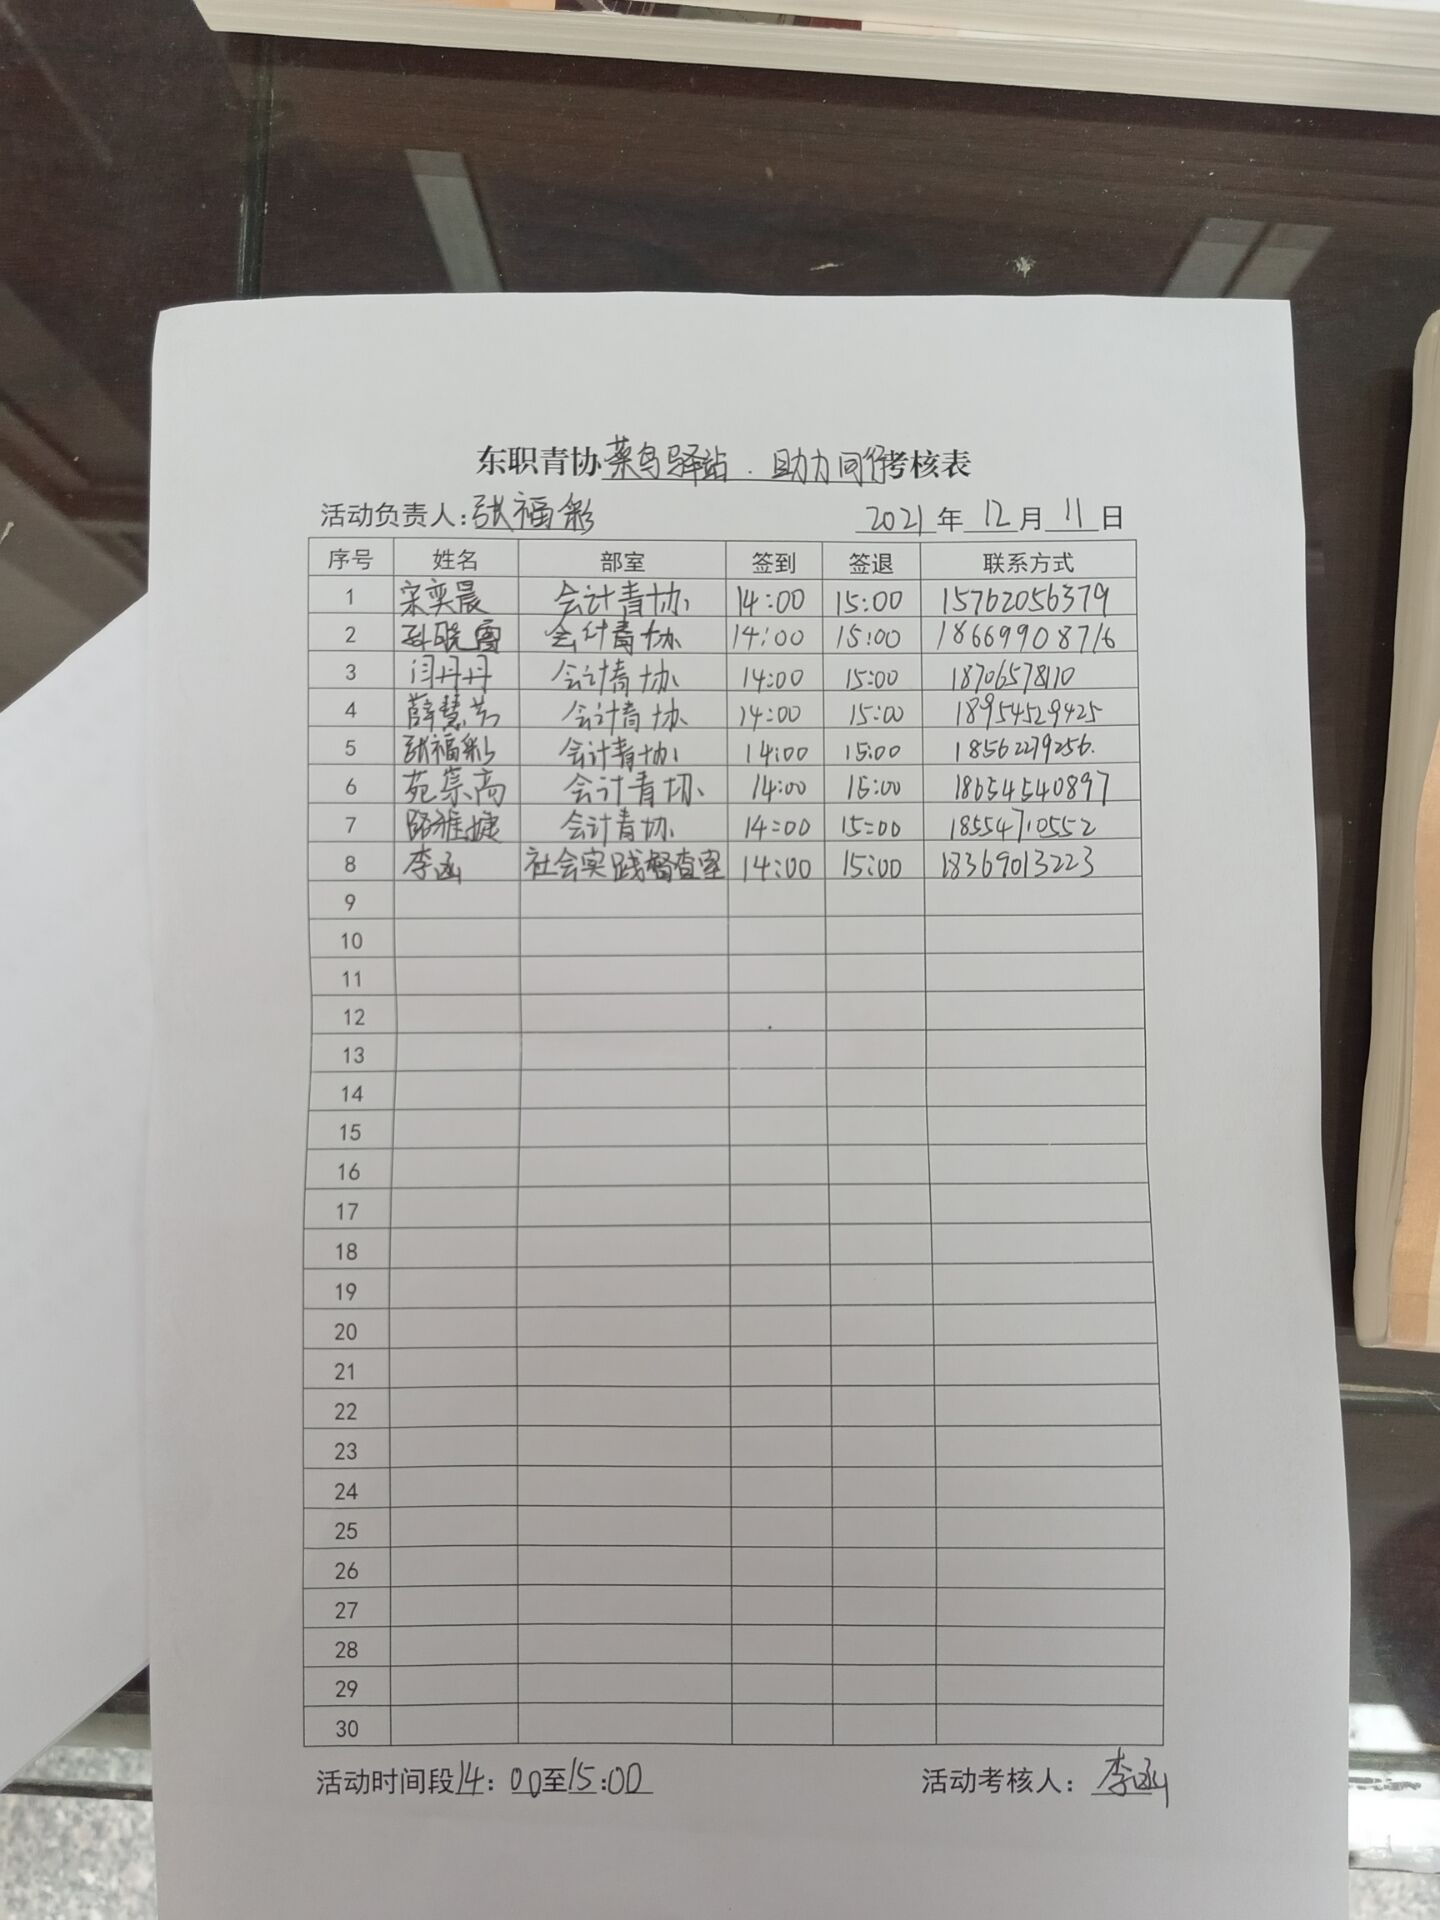 东职青协菜鸟驿站.助力同行考核表
活动负责人:张福彩 2021年12月11日
序号 姓名 部室 签到 签退 联系方式
1 宋奕晨 会计青协 14:00 15:00 15762056379
2 孙晓雪 会计青协 14:00 15:00 18669908716
3 闫丹丹 会计青协 14:00 15:00 18706578110
4 薛慧芳 会计青协 14:00 15:00 18954529425
5 张福彩 会计青协 14:00 15:00 18562279256.
6 苑崇高 会计青协 14:00 15:00 18654540897
7 路雅婕 会计青协 14:00 15:00 18554710552
8 李函 社会实践督查室 14:00 15:00 18369013223
9
10
11
12
13
14
15
16
17
18
19
20
21
22
23
24
25
26
27
28
29
30
活动时间段14:00至15:00 活动考核人:李函